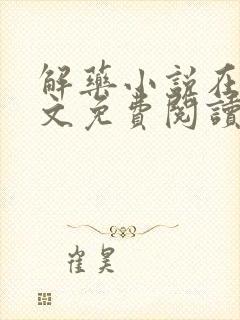 解藥小説在
文免費閱讀
崔昊